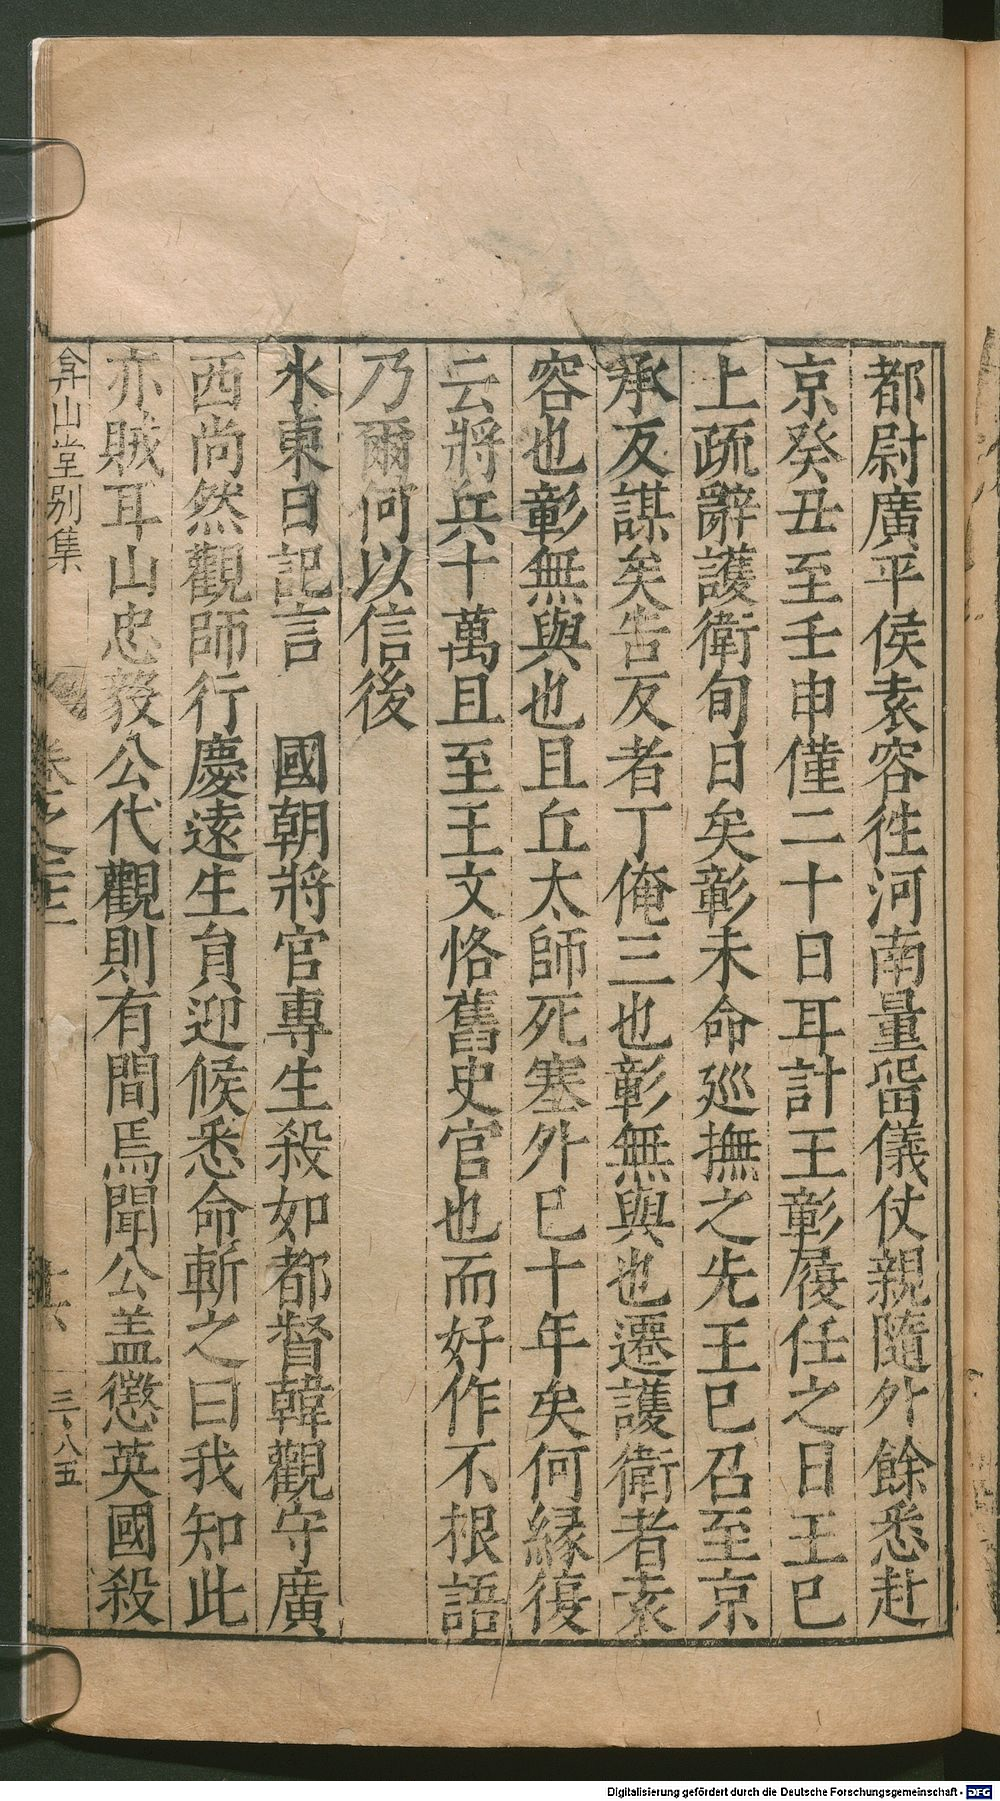 都尉廣平侯袁容徃河南量留儀仗親隨外餘悉赴
京癸丑至壬申僅二十日耳計王彰履任之日王已
上疏辭護衛旬日矣彰未命廵撫之先王已召至京
承反謀矣告反者丁俺三也彰無與也遷護衛者袁
容也彰無與也且丘太師死塞外已十年矣何緣復
云將兵十萬且至王文恪舊史官也而好作不根語
乃爾何以信後
水東日記言　國朝將官專生殺如都督韓觀守廣
西尚然觀師行慶遠生員迎候悉命斬之曰我知此
亦賊耳山忠毅公代觀則有間焉聞公盖懲英國殺
弇山堂别集
卷之二三
十六
三、八五
Digitalisierung gefördert durch die Deutsche Forschungsgemeinschaft - DFG